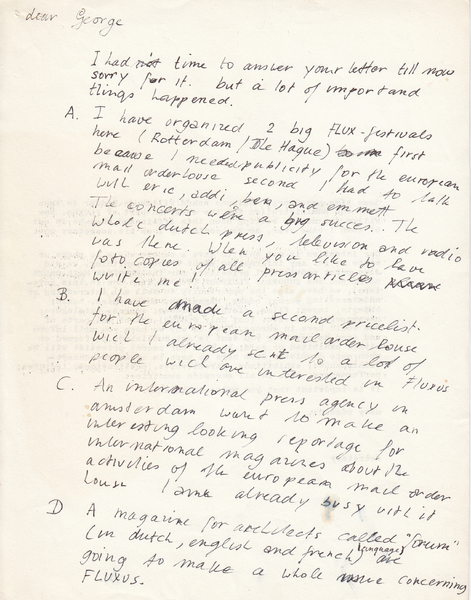 dear George
I had not time to answer your letter till now
sorry for it. but a lot of importand
things happened.
A. I have organized 2 big FLUX-festivals
here (Rotterdam / The Hague) first
because I needed publicity for the european
mail orderhouse second I had to talk
with eric, addi, ben, and emmett
The concerts were a big succes. The
whole dutch press, television and radio
was there. When you like to have
fotocopies of all pressarticles
write me!
B. I have made a second pricelist.
for the european mail order house
wich I already sent to a lot of
people wich are interested in Fluxus
C. An international press agency in
amsterdam want to make an
interesting looking reportage for
international magazines about the
activities of the european mail order
house I am already busy with it
D A magazine for architects called "forum"
(in dutch, english and french) (language) are
going to make a whole concerning
FLUXUS.